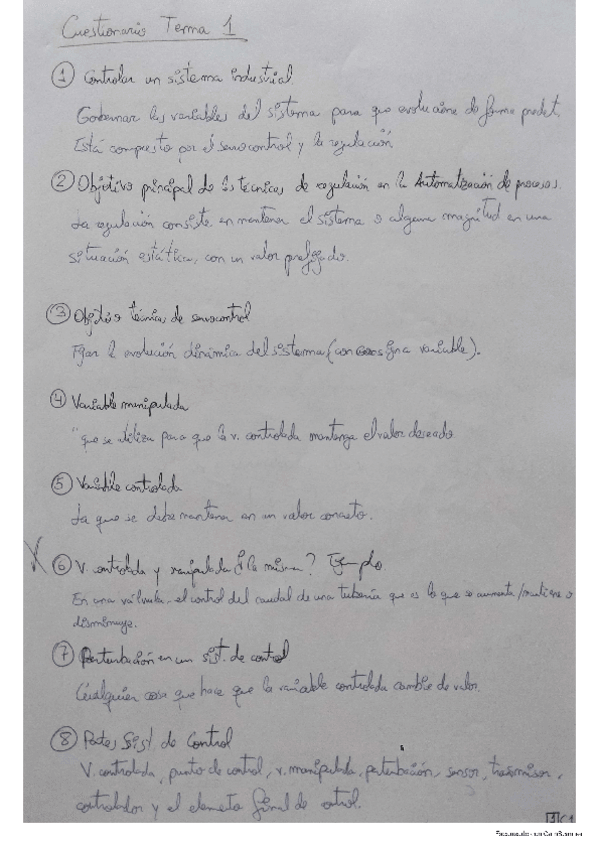 Cuestionario Tema 1
① Controlar un sistema industrial
Gobernar las variables del sistema para que evolucione de forma predet.
Está compuesto por el servocontrol y la regulación
② Objetivo principal de las técnicas de regulación en la Automatización de procesos.
La regulación consiste en mantener el sistema o alguna magnitud en una
situación estática, con un valor prefijado.
③ Objetivo técnicas de servocontrol
Fijar la evolución dinámica del sistema (con consigna variable).
④ Variable manipulada
"que se utiliza para que la v. controlada mantenga el valor deseado
⑤ Variable controlada
La que se debe mantener en un valor concreto.
X ⑥ V. controlada y manipulada la misma? Ejemplo.
En una válvula, el control del caudal de una tubería que es lo que se aumenta/mantiene o
disminuye.
⑦ Perturbación en un sist. de control
Cualquier cosa que hace que la variable controlada cambie de valor.
⑧ Partes Sist. de Control
V. controlada, punto de control, v. manipulada, perturbación, sensor, transmisor,
controlador y el elemento final de control.